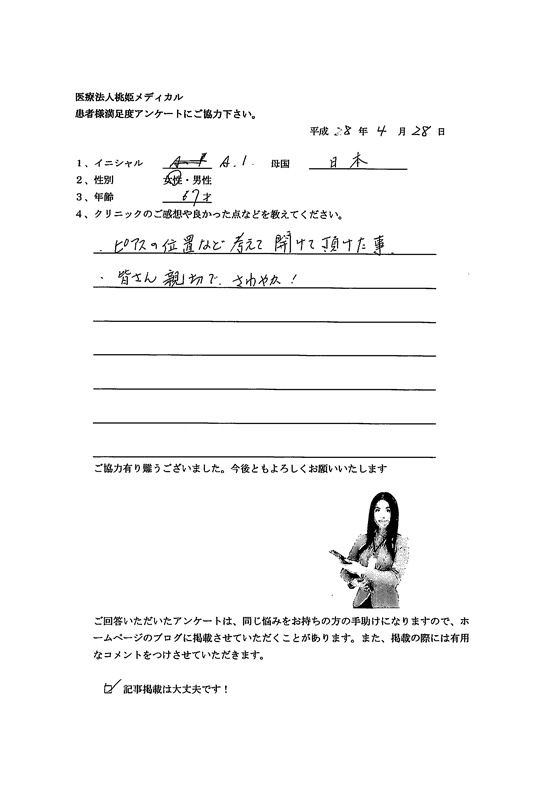 医療法人桃姫メディカル
患者様満足度アンケートにご協力下さい。
平成 28 年 4 月 28 日
1、イニシャル A.I. 母国 日本
2、性別 女性・男性
3、年齢 67才
4、クリニックのご感想や良かった点などを教えてください。
・ピアスの位置など考えて開けて頂けた事。
・皆さん親切で、さわやか！
ご協力有り難うございました。今後ともよろしくお願いいたします
ご回答いただいたアンケートは、同じ悩みをお持ちの方の手助けになりますので、ホ
ームページのブログに掲載させていただくことがあります。また、掲載の際には有用
なコメントをつけさせていただきます。
記事掲載は大丈夫です！